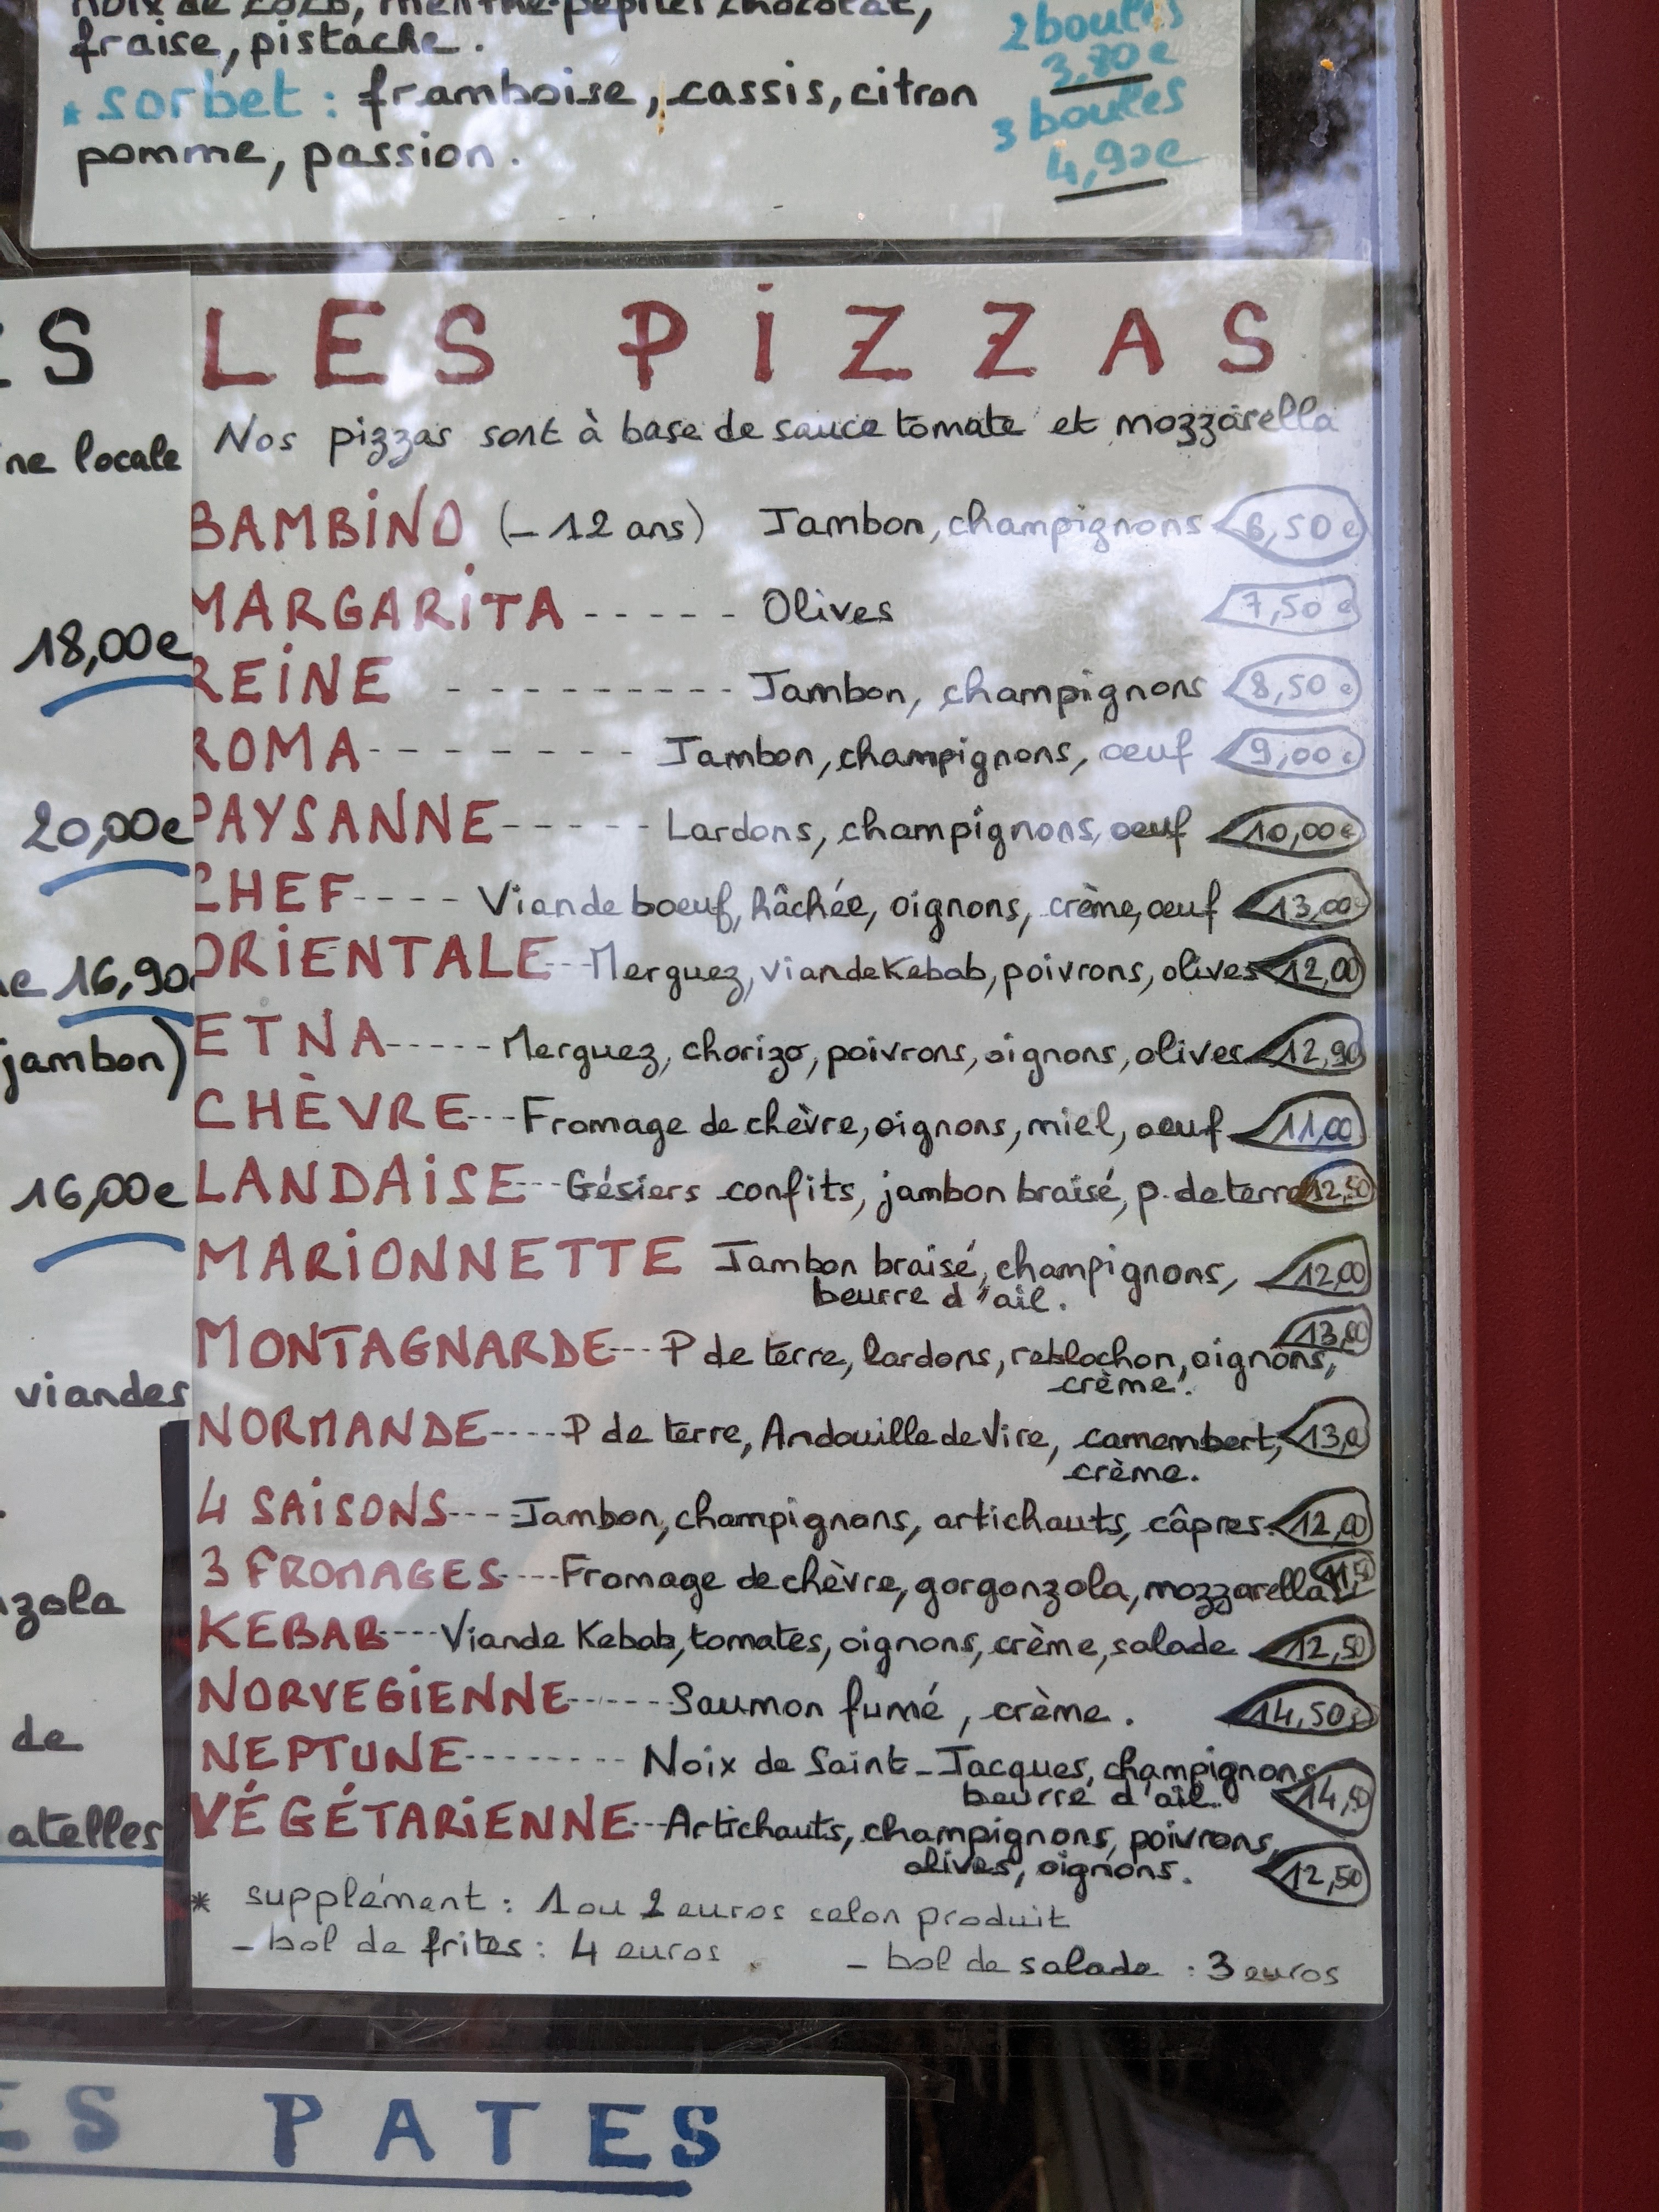 fraise, pistache.
* sorbet : framboise, cassis, citron
pomme, passion.
2 boules
3,80e
3 boules
4,90e
LES PiZZAS
Nos pizzas sont à base de sauce tomate et mozzarella
BAMBiNO (-12 ans) Jambon, champignons 6,50e
MARGARiTA ----- Olives 7,50e
REiNE --------- Jambon, champignons 8,50e
ROMA -------- Jambon, champignons, oeuf 9,00e
PAYSANNE ----- Lardons, champignons, oeuf 10,00e
CHEF ---- Viande boeuf, hâchée, oignons, crème, oeuf 13,00
ORiENTALE --- Merguez, viande Kebab, poivrons, olives 12,00
ETNA ----- Merguez, chorizo, poivrons, oignons, olives 12,90
CHÈVRE --- Fromage de chèvre, oignons, miel, oeuf 11,00
LANDAiSE --- Gésiers confits, jambon braisé, p. de terre 12,50
MARiONNETTE Jambon braisé, champignons, 12,00
beurre d'ail.
MONTAGNARDE --- P de terre, lardons, reblochon, oignons, 13,00
crème.
NORMANDE ---- P de terre, Andouille de Vire, camembert, 13,0
crème.
4 SAiSONS ---- Jambon, champignons, artichauts, câpres. 12,00
3 FROMAGES ---- Fromage de chèvre, gorgonzola, mozzarella 11,50
KEBAB --- Viande Kebab, tomates, oignons, crème, salade 12,50
NORVEGiENNE ------ Saumon fumé, crème. 14,50e
NEPTUNE -------- Noix de Saint-Jacques, champignons,
beurre d'ail. 14,50
VÉGÉTARiENNE --- Artichauts, champignons, poivrons,
olives, oignons. 12,50
* supplément : 1 ou 2 euros selon produit
- bol de frites : 4 euros - bol de salade : 3 euros
ES
ne locale
18,00e
20,00e
e 16,90
jambon)
16,00e
viandes
zola
de
atelles
ES PATES